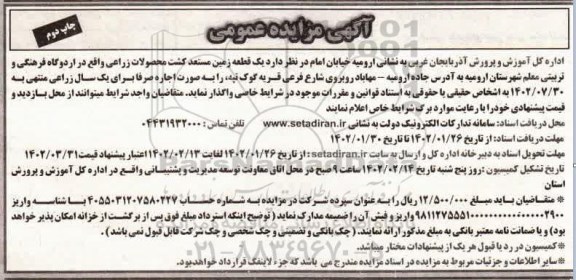 آگهی مزایده عمومی
چاپ دوم
اداره کل آموزش و پرورش آذربایجان غربی به نشانی ارومیه خیابان امام در نظر دارد یک قطعه زمین مستعد کشت محصولات زراعی واقع در اردوگاه فرهنگی و
تربیتی معلم شهرستان ارومیه به آدرس جاده ارومیه – مهاباد روبروی شارع فرعی قریه گوک تپه، را به صورت اجاره صرفا برای یک سال زراعی منتهی به
۱۴۰۲/۰۷/۳۰ به اشخاص حقیقی یا حقوقی به استناد قوانین و مقررات موجود در شرایط خاصی واگذار نماید. متقاضیان واجد شرایط میتوانند از محل بازدید و
قیمت پیشنهادی خود را با رعایت موارد برگ شرایط خاص اعلام نمایند
محل دریافت اسناد: سامانه تدارکات الکترونیک دولت به نشانی www.setadiran.ir تلفن تماس: ۰۴۴۳۱۹۳۲۰۰۰
مهلت دریافت اسناد: از تاریخ ۱۴۰۲/۰۱/۲۶ تا تاریخ ۱۴۰۲/۰۱/۳۰
مهلت تحویل اسناد به دبیرخانه اداره کل و ارسال به سایت setadiran.ir: از تاریخ ۱۴۰۲/۰۱/۲۶ لغایت ۱۴۰۲/۰۲/۱۳ اعتبار پیشنهاد قیمت ۱۴۰۲/۰۳/۳۱
تاریخ تشکیل کمیسیون: روز پنج شنبه تاریخ ۱۴۰۲/۰۲/۱۴ ساعت ۹ صبح در محل اتاق معاونت توسعه مدیریت و پشتیبانی واقع در اداره کل آموزش و پرورش
استان
* متقاضیان باید مبلغ ۱۲/۵۰۰/۰۰۰ ریال را به عنوان سپرده شرکت در مزایده به شماره حساب ۴۰۵۵۰۳۱۲۰۷۵۸۰۲۲۷ با شناسه واریز
واریز و فیش آن را ضمیمه مدارک نماید (توضیح اینکه استرداد مبلغ فوق پس از برگشت از خزانه امکان پذیر خواهد
بود) و یا ضمانت نامه معتبر بانکی به مبلغ مذکور ارائه نمایند. (چک بانکی و تضمینی و چک شخصی و چک شرکت قابل قبول نمی باشد).
*کمیسیون در رد یا قبول هر یک از پیشنهادات مختار میباشد.
* سایر اطلاعات و جزئیات مربوط به مزایده در اسناد مزایده مندرج می باشد که جزء لاینفک قرارداد خواهد بود.
۰۲۱-۸۸۳۴۹۶۷۰